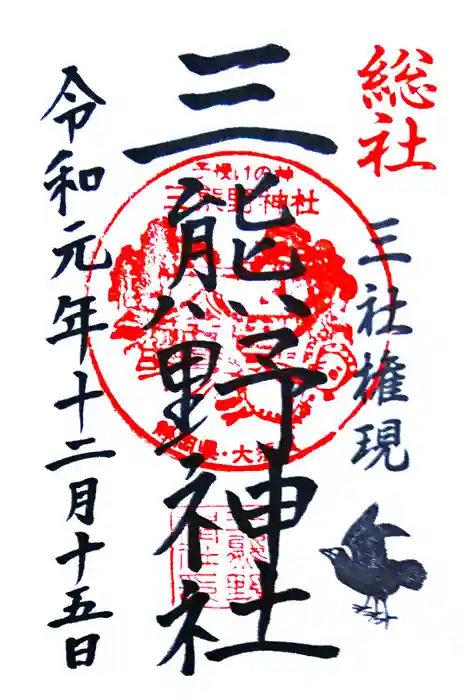 総社
三社権現
三熊野神社
令和元年十二月十五日
子授けの神
三熊野神社